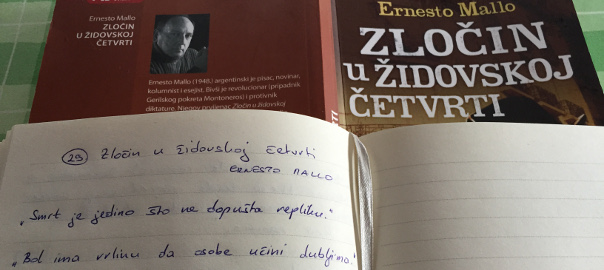 Ernesto Mallo
ZLOČIN
U ŽIDOVSKOJ
ČETVRTI
Ernesto Mallo (1948.) argentinski je pisac, novinar,
kolumnist i esejist. Bivši je revolucionar (pripadnik
Gerilskog pokreta Montoneros) i protivnik
diktature. Njegov prvijenac Zločin u židovskoj
Ernesto Mallo
ZLOČIN
U ŽIDOVSKOJ
ČETVRTI
29 Zločin u židovskoj četvrti
ERNESTO MALLO
„Smrt je jedino što ne dopušta repliku."
„Bol ima vrlinu da osobe učini dubljima."